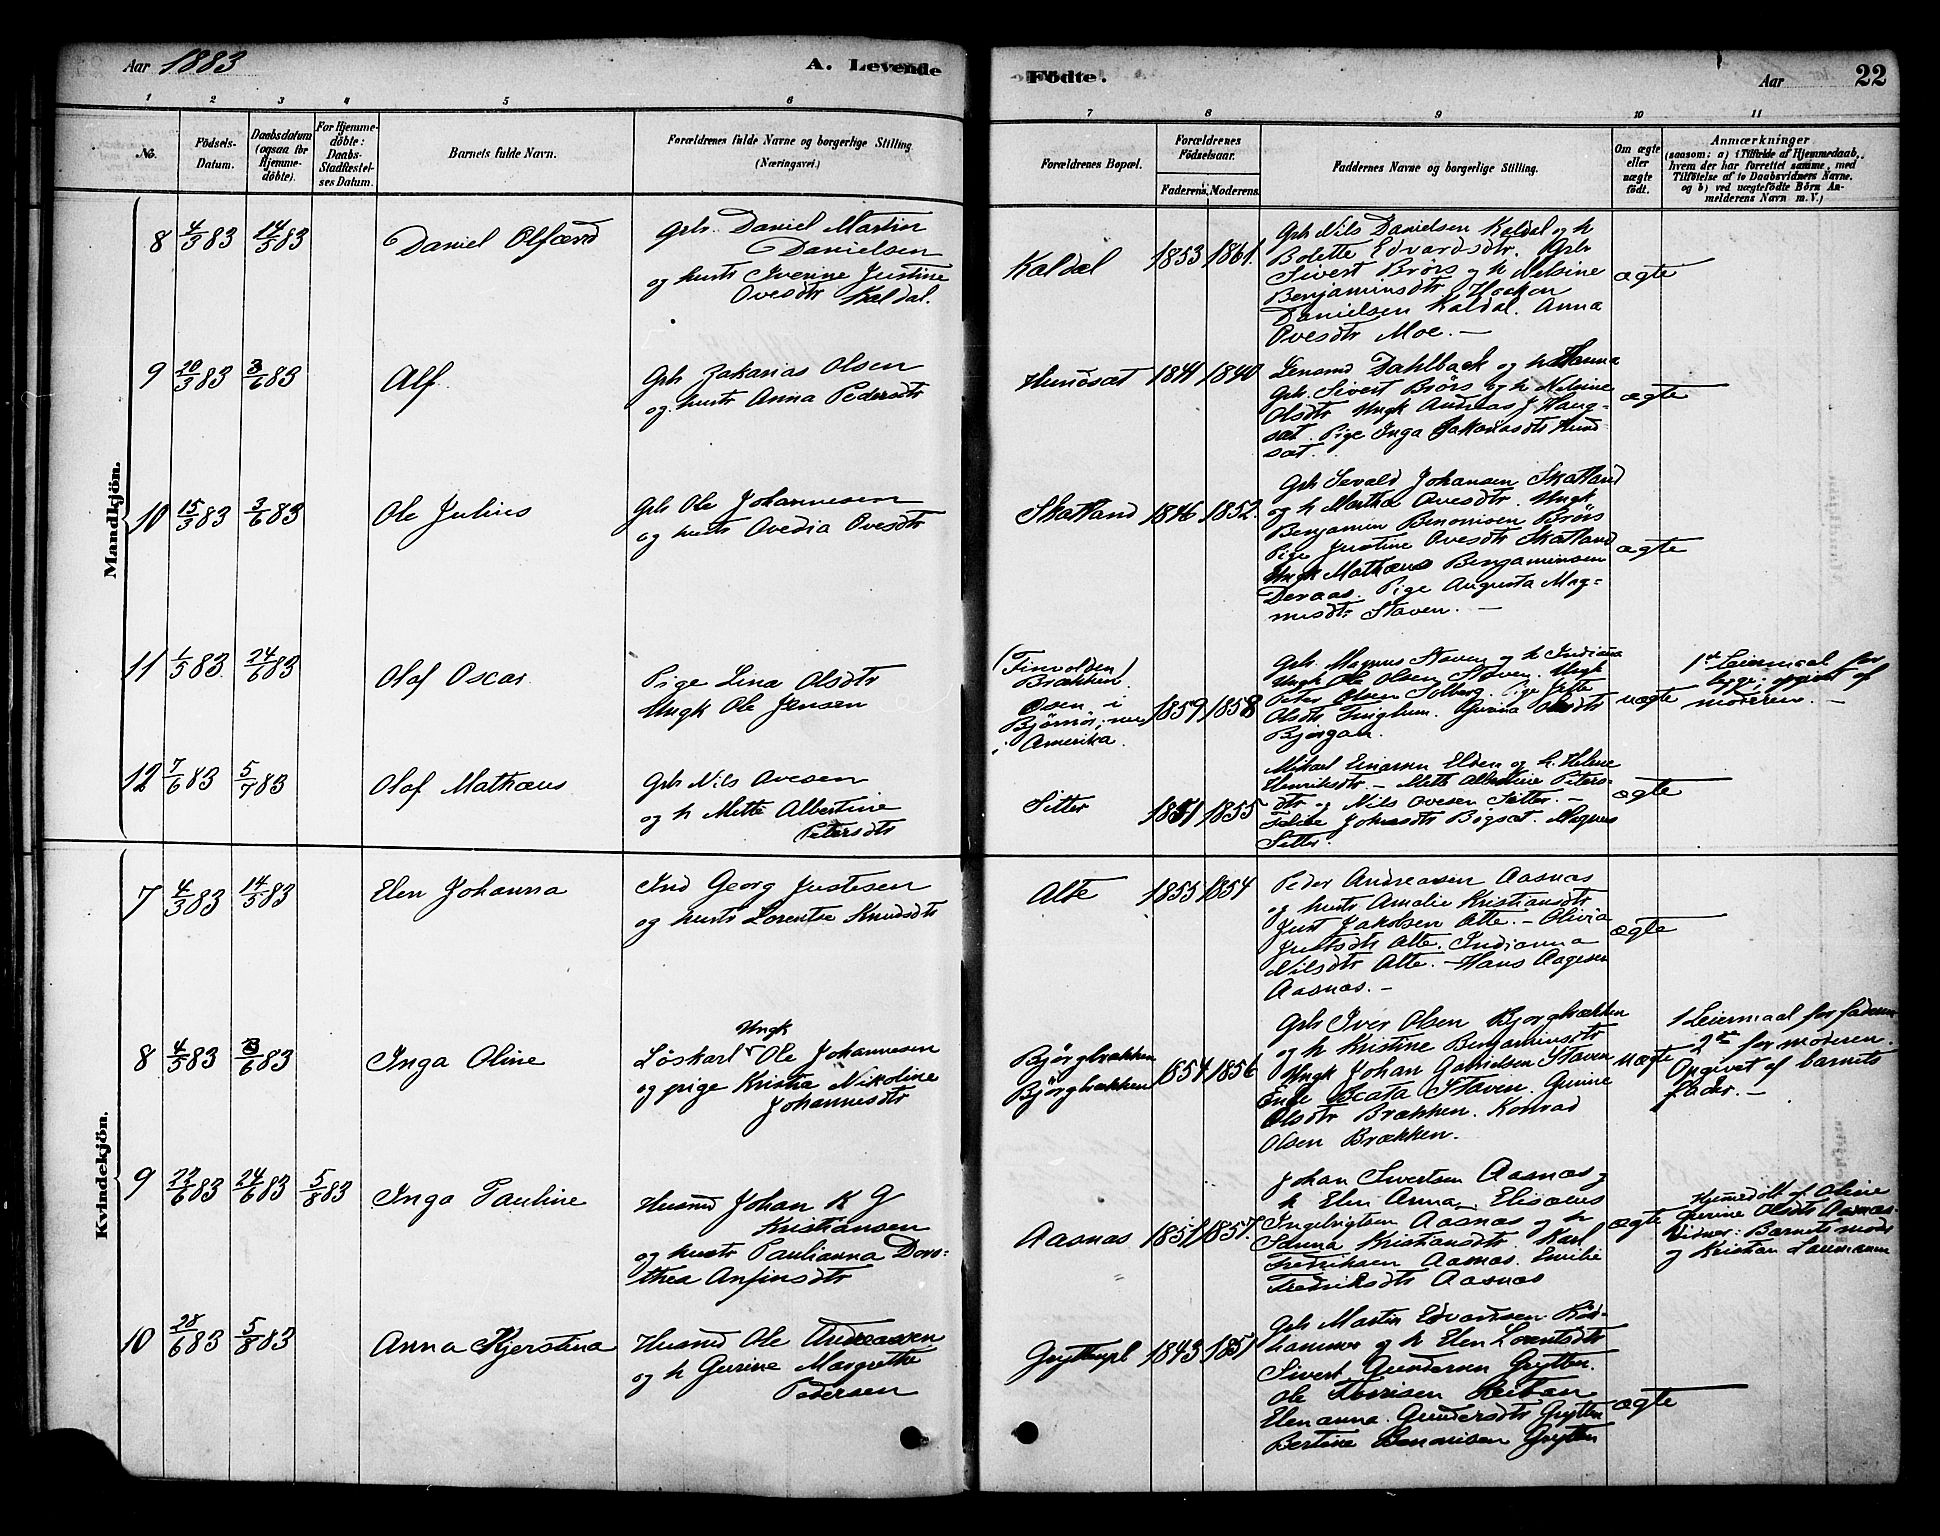 Aar 1883
A. Levende
Födte.
Aar
22
1 2 3 4 5 6 7 8 9 10 11
No.
Födsels-
Datum.
Daabsdatum
(ogsaa for
Hjemme-
döbte).
For Hjemme-
döbte:
Daabs-
Stadfæstel-
ses Datum.
Barnets fulde Navn.
Forældrenes fulde Navne og borgerlige Stilling.
(Næringsvei.)
Forældrenes Bopæl.
Forældrenes
Födselsaar.
Faderens. Moderens.
Faddernes Navne og borgerlige Stilling.
Om ægte
eller
uægte
födt.
Anmærkninger
(saasom: a) i Tilfælde af Hjemmedaab,
hvem der har forrettet samme, med
Tilföielse af to Daabsvidners Navne.
og b) ved uægtefödte Börn An-
melderens Navn m. V.)
Mandkjön.
8 4/3 83 14/5 83
Daniel
Gbr. Daniel Martin
Danielsen
og hustr Iverine Justine
Ovesdtr Kaldal.
Kaldal
1853 1861.
Gbr Nils Danielsen Kaldal og h
Bolette Edvardsdtr. Gbr
Sivert Brörs og h Nelsine
Benjaminsdtr Haakon
Danielsen Kaldal. Anna
Ovesdtr Moe. —
ægte
9 20/3 83 3/6 83
Alf
Gbr Zakarias Olsen
og hustr Anna Pedersdtr
1841 1840
Lensmd Dahlback og h Hanna
Gbr. Sivert Brörs og h Nelsine
Olsdtr Ungk Andreas J. Haug-
sæt. Pige Inga Zakariasdtr Hund
sæt.
ægte
10 15/3 83 3/6 83
Ole Julius
Gbr Ole Johannesen
og hustr Avedia Ovesdtr
Skatland
1846 1852.
Gbr Sevald Johansen Skatland
og h Martha Ovesdtr. Ungk
Benjamin Benonisen Brörs
Pige Justine Ovesdtr Skatland
Ungk Mathæus Benjaminsen
Deraas. Pige Augusta Mag-
nusdtr Staven. —
ægte
11 1/5 83 24/6 83
Olaf Oscar
Pige Lina Olsdtr
Ungk Ole Jensen
(Finvolden)
Brækken.
Osen i
Bjørnör, nu
i Amerika.
1859 1858
Gbr. Magnus Staven og h Indiana
Ungk Ole Olsen Staven. Ungk
Peter Olsen Solberg. Pige Jette
Olsdtr Tinghum. Gurina Olsdtr
Bjørgan.
uægte
1ste Leiermaal for
begge; opgivet af
moderen. —
12 7/6 83 5/7 83
Olaf Mathæus
Gbr Nils Ovesen
og h Mette Albertine
Petersdtr
Sitter
1851 1855
Mikael Einarsen Elden og h. Helene
Henriksdtr. — Mette Albertine Peters-
dtr og Nils Ovesen Sitter. —
Bigsæt. Magnus
Sitter.
ægte
Kvindekjön.
7 4/3 83 14/5 83
Elen Johanna
Ind Georg Justesen
og hustr Lorentse Knudsdtr
Alte
1855 1854
Peder Andreasen Aasnæs
og hustr Amalie Kristiansdtr
Just Jakobsen Alte. — Olivia
Justsdtr Alte. Indianna
Nilsdtr Alte. — Hans Aagesen
Aasnæs. —
ægte
8 4/5 83 3/6 83
Inga Oline
Ungk
Løskarl Ole Johannesen
og pige Kristia Nikoline
Johannesdtr
Bjørgbrækken
Bjørgbækken
1854 1856
Gbr Iver Olsen Bjørgbækken
og h Kristine Benjaminsdtr
Ungk Johan Gabrielsen Staven
Enke Beata Staven. Gurine
Olsdtr Brækken. Konrad
Olsen Brækken.
uægte
1 Leiermaal for faderen
2det for moderen.
Opgivet af barnets
fader. —
9 22/6 83 24/6 83 5/8 83
Inga Pauline
Husmd Johan K G
Kristiansen
og hustr Paulianna Doro-
thea Anfinsdtr
Aasnæs
1851 1857.
Johan Sivertsen Aasnæs og
h Elen Anna. Elisæus
Ingebrigtsen Aasnæs og h
Kristiansdtr. Karl
Fredriksen Aasnæs. Emilie
Fredriksdtr Aasnæs
ægte
Hjemedöbt af Oline
Gurine Olsdtr Aasnæs.
Vidner: Barnets moder
og Kristian Laumann
10 28/6 83 5/8 83
Anna Kjerstina
Husmd Ole Andreassen
og h Gurine Margrethe
Pedersen
1843 1851
Gbr Martin Edvardsen Röd-
hammer og h Elen Lorentsdtr
Sivert Gundersen Grytten.
Ole Reitan
Elen Anna Gundersdtr Grytten
Bertine Benonisen Grytten
ægte